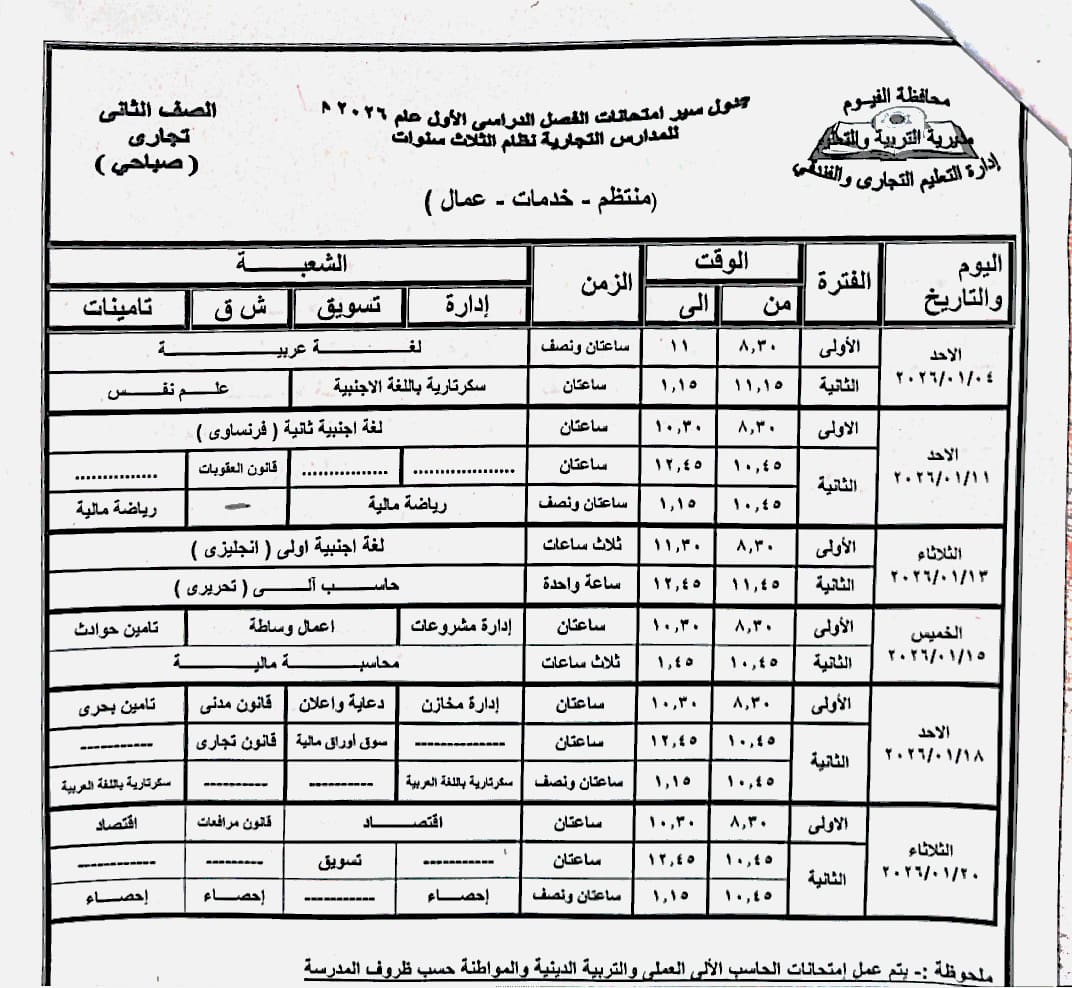 محافظة الفيوم
مديرية التربية والتعليم
إدارة التعليم التجارى والفندقي
جدول سير امتحانات الفصل الدراسي الأول عام ٢٠٢٦
للمدارس التجارية نظام الثلاث سنوات
(منتظم - خدمات - عمال )
الصف الثانى
تجارى
( صباحي )
اليوم والتاريخ | الفترة | الوقت | الزمن | الشعبـــــة
من | الى | إدارة | تسويق | ش ق | تامينات
الاحد ٢٠٢٦/٠١/٠٤ | الأولى | ٨,٣٠ | ١١ | ساعتان ونصف | لغــــة عربيـــــة
الثانية | ١١,١٥ | ١,١٥ | ساعتان | سكرتارية باللغة الاجنبية | علـم نفـــس
الاحد ٢٠٢٦/٠١/١١ | الاولى | ٨,٣٠ | ١٠,٣٠ | ساعتان | لغة اجنبية ثانية ( فرنساوى )
الثانية | ١٠,٤٥ | ١٢,٤٥ | ساعتان | ................... | ................ | قانون العقوبات | ...............
١٠,٤٥ | ١,١٥ | ساعتان ونصف | رياضة مالية | — | رياضة مالية
الثلاثاء ٢٠٢٦/٠١/١٣ | الأولى | ٨,٣٠ | ١١,٣٠ | ثلاث ساعات | لغة اجنبية اولى ( انجليزى )
الثانية | ١١,٤٥ | ١٢,٤٥ | ساعة واحدة | حاسـب آلـــى ( تحريرى )
الخميس ٢٠٢٦/٠١/١٥ | الأولى | ٨,٣٠ | ١٠,٣٠ | ساعتان | إدارة مشروعات | اعمال وساطة | تامين حوادث
الثانية | ١٠,٤٥ | ١,٤٥ | ثلاث ساعات | محاسبـــة ماليـــة
الاحد ٢٠٢٦/٠١/١٨ | الأولى | ٨,٣٠ | ١٠,٣٠ | ساعتان | إدارة مخازن | دعاية واعلان | قانون مدنى | تامين بحرى
الثانية | ١٠,٤٥ | ١٢,٤٥ | ساعتان | -------------- | سوق أوراق مالية | قانون تجارى | -----------
١٠,٤٥ | ١,١٥ | ساعتان ونصف | سكرتارية باللغة العربية | ---------- | ---------- | سكرتارية باللغة العربية
الثلاثاء ٢٠٢٦/٠١/٢٠ | الاولى | ٨,٣٠ | ١٠,٣٠ | ساعتان | اقتصـــاد | قانون مرافعات | اقتصاد
الثانية | ١٠,٤٥ | ١٢,٤٥ | ساعتان | ----------- | تسويق | --------- | ------------
١٠,٤٥ | ١,١٥ | ساعتان ونصف | إحصـــاء | ----------- | إحصـــاء | إحصـــاء
ملحوظة :- يتم عمل إمتحانات الحاسب الألى العملى والتربية الدينية والمواطنة حسب ظروف المدرسة